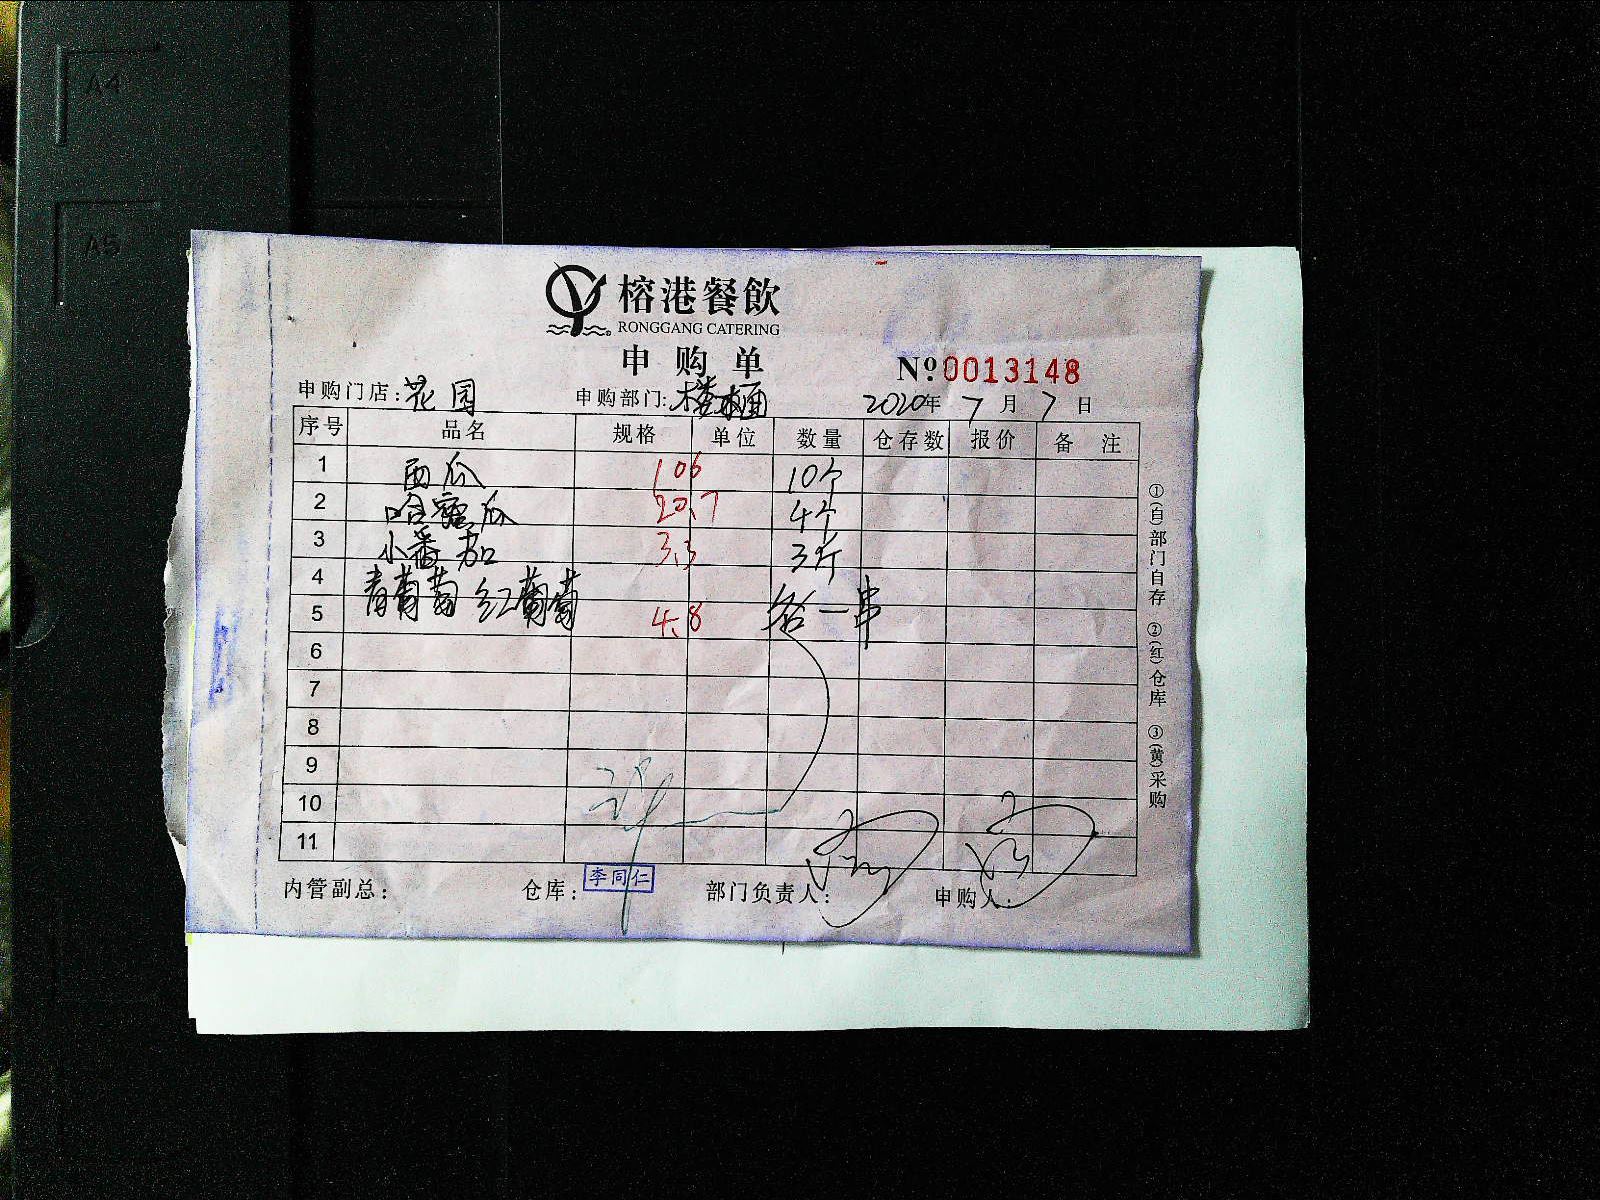 A4
A5
榕港餐飲
RONGGANG CATERING
申购单
№0013148
申购门店:花园 申购部门:楼面 2020年7月7日
序号 品名 规格 单位 数量 仓存数 报价 备注
1 西瓜 106 10个
2 哈密瓜 20.7 4个
3 小番茄 3.3 3斤
4 青葡萄 红葡萄
5 4.8 各一串
6
7
8
9
10
11
内管副总: 仓库: 李同仁 部门负责人: 申购人:
①(白)部门自存 ②(红)仓库 ③(黄)采购